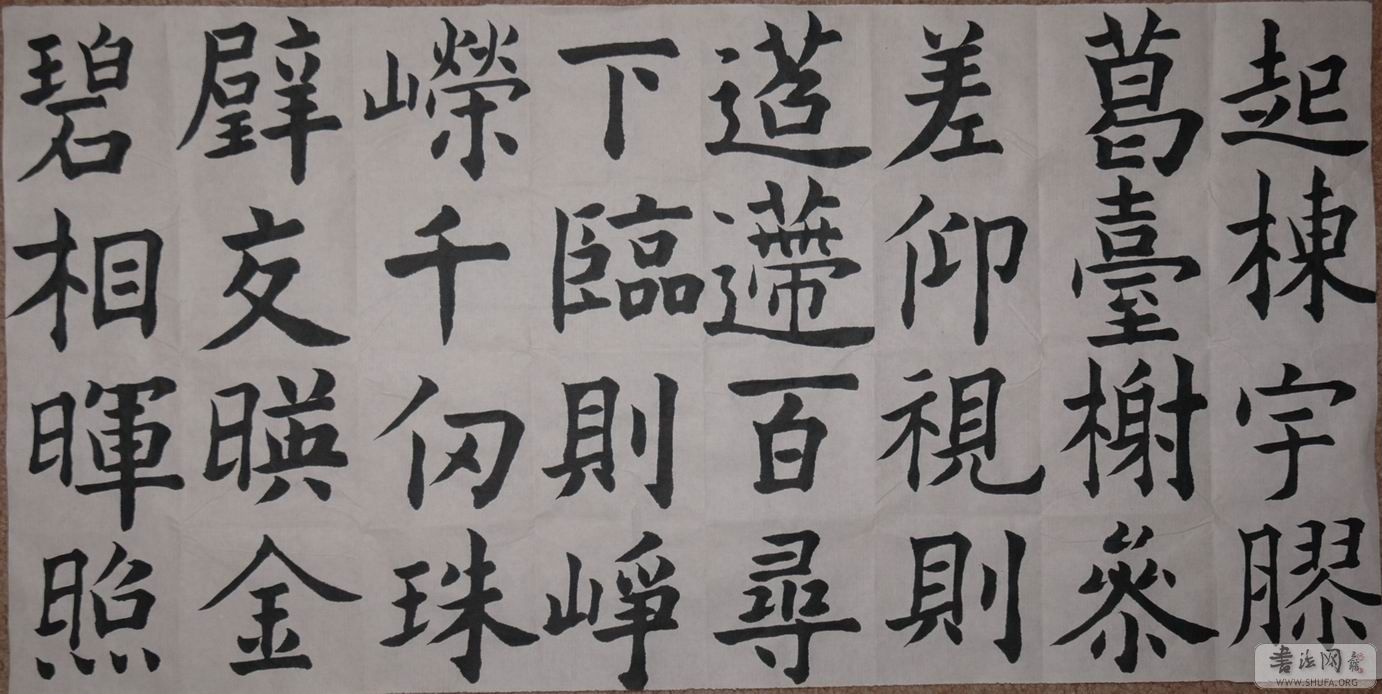 起棟宇膠
葛臺榭參
差仰視則
迢遰百尋
下臨則崢
嶸千仞珠
壁交暎金
碧相暉照
书法网
WWW.SHUFA.ORG